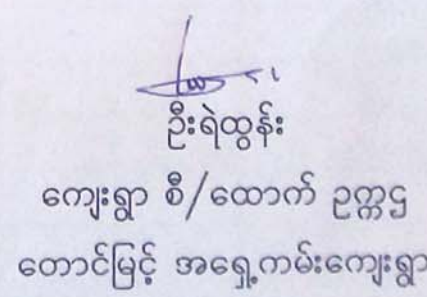 ဦးရဲထွန်း
ကျေးရွာ စီ/ထောက် ဥက္ကဌ
တောင်မြင့် အရှေ့ကမ်းကျေးရွာ